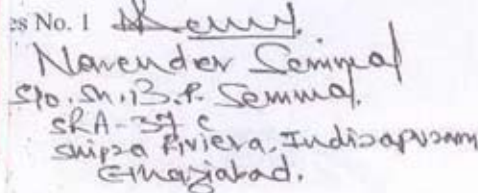 es No. 1
Narender Semmal
S/o. Sh. B.P. Semmal.
SRA-37 C
Shipra Riviera, Indirapuram
Ghaziabad.